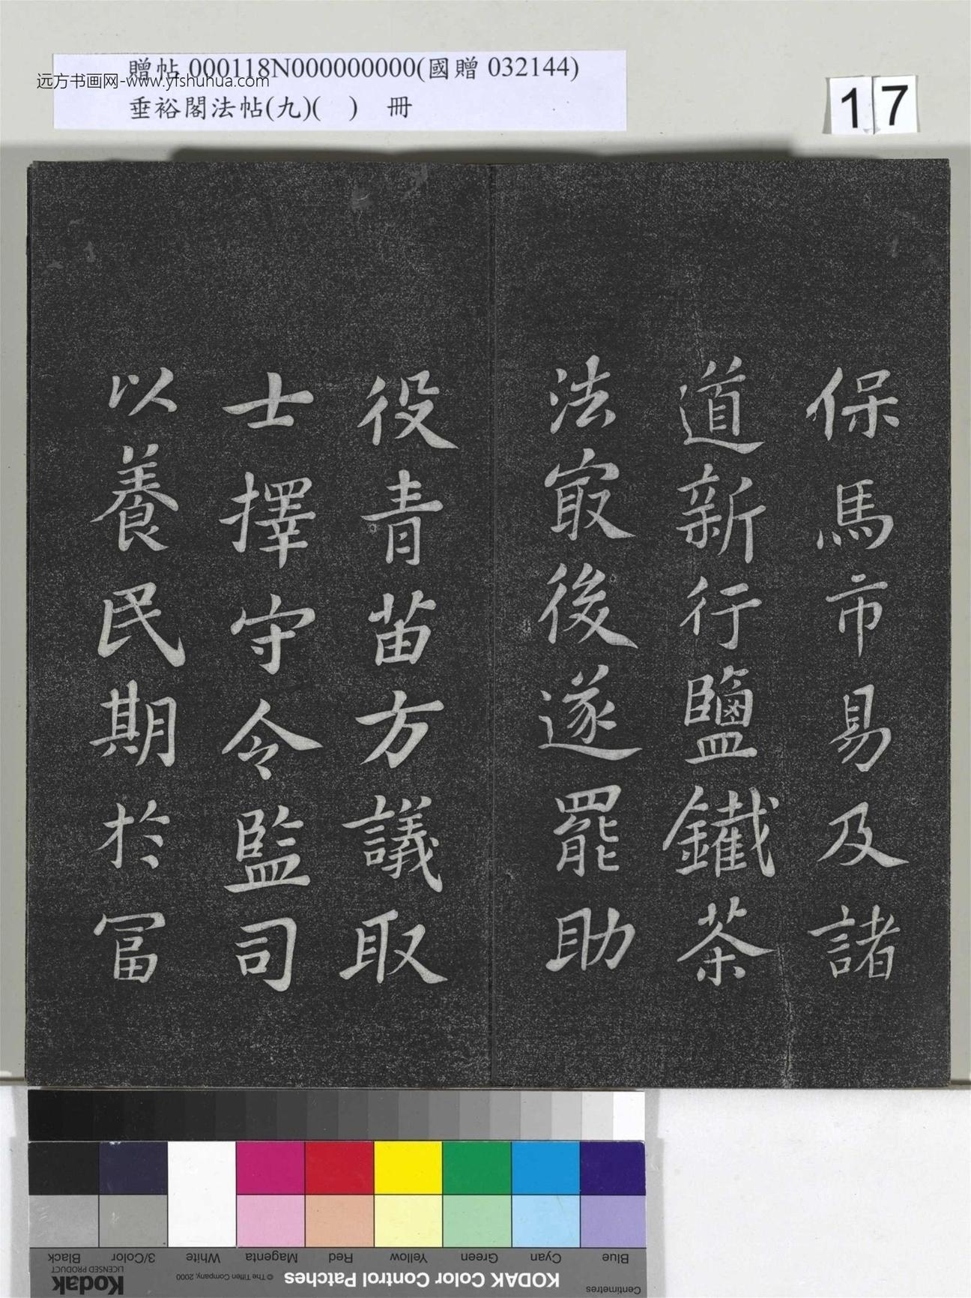 贈帖 000118N000000000(國贈 032144)
远方书画网-www.yfshuhua.com
垂裕閣法帖(九)( ) 冊
17
保馬市易及諸
道新行鹽鐵茶
法㝡後遂罷助
役青苗方議取
士擇守令監司
以養民期於冨
Black
3/Color
White
Magenta
Red
Yellow
Green
Cyan
Blue
Kodak
LICENSED PRODUCT
© The Tiffen Company, 2000
KODAK Color Control Patches
Centimetres